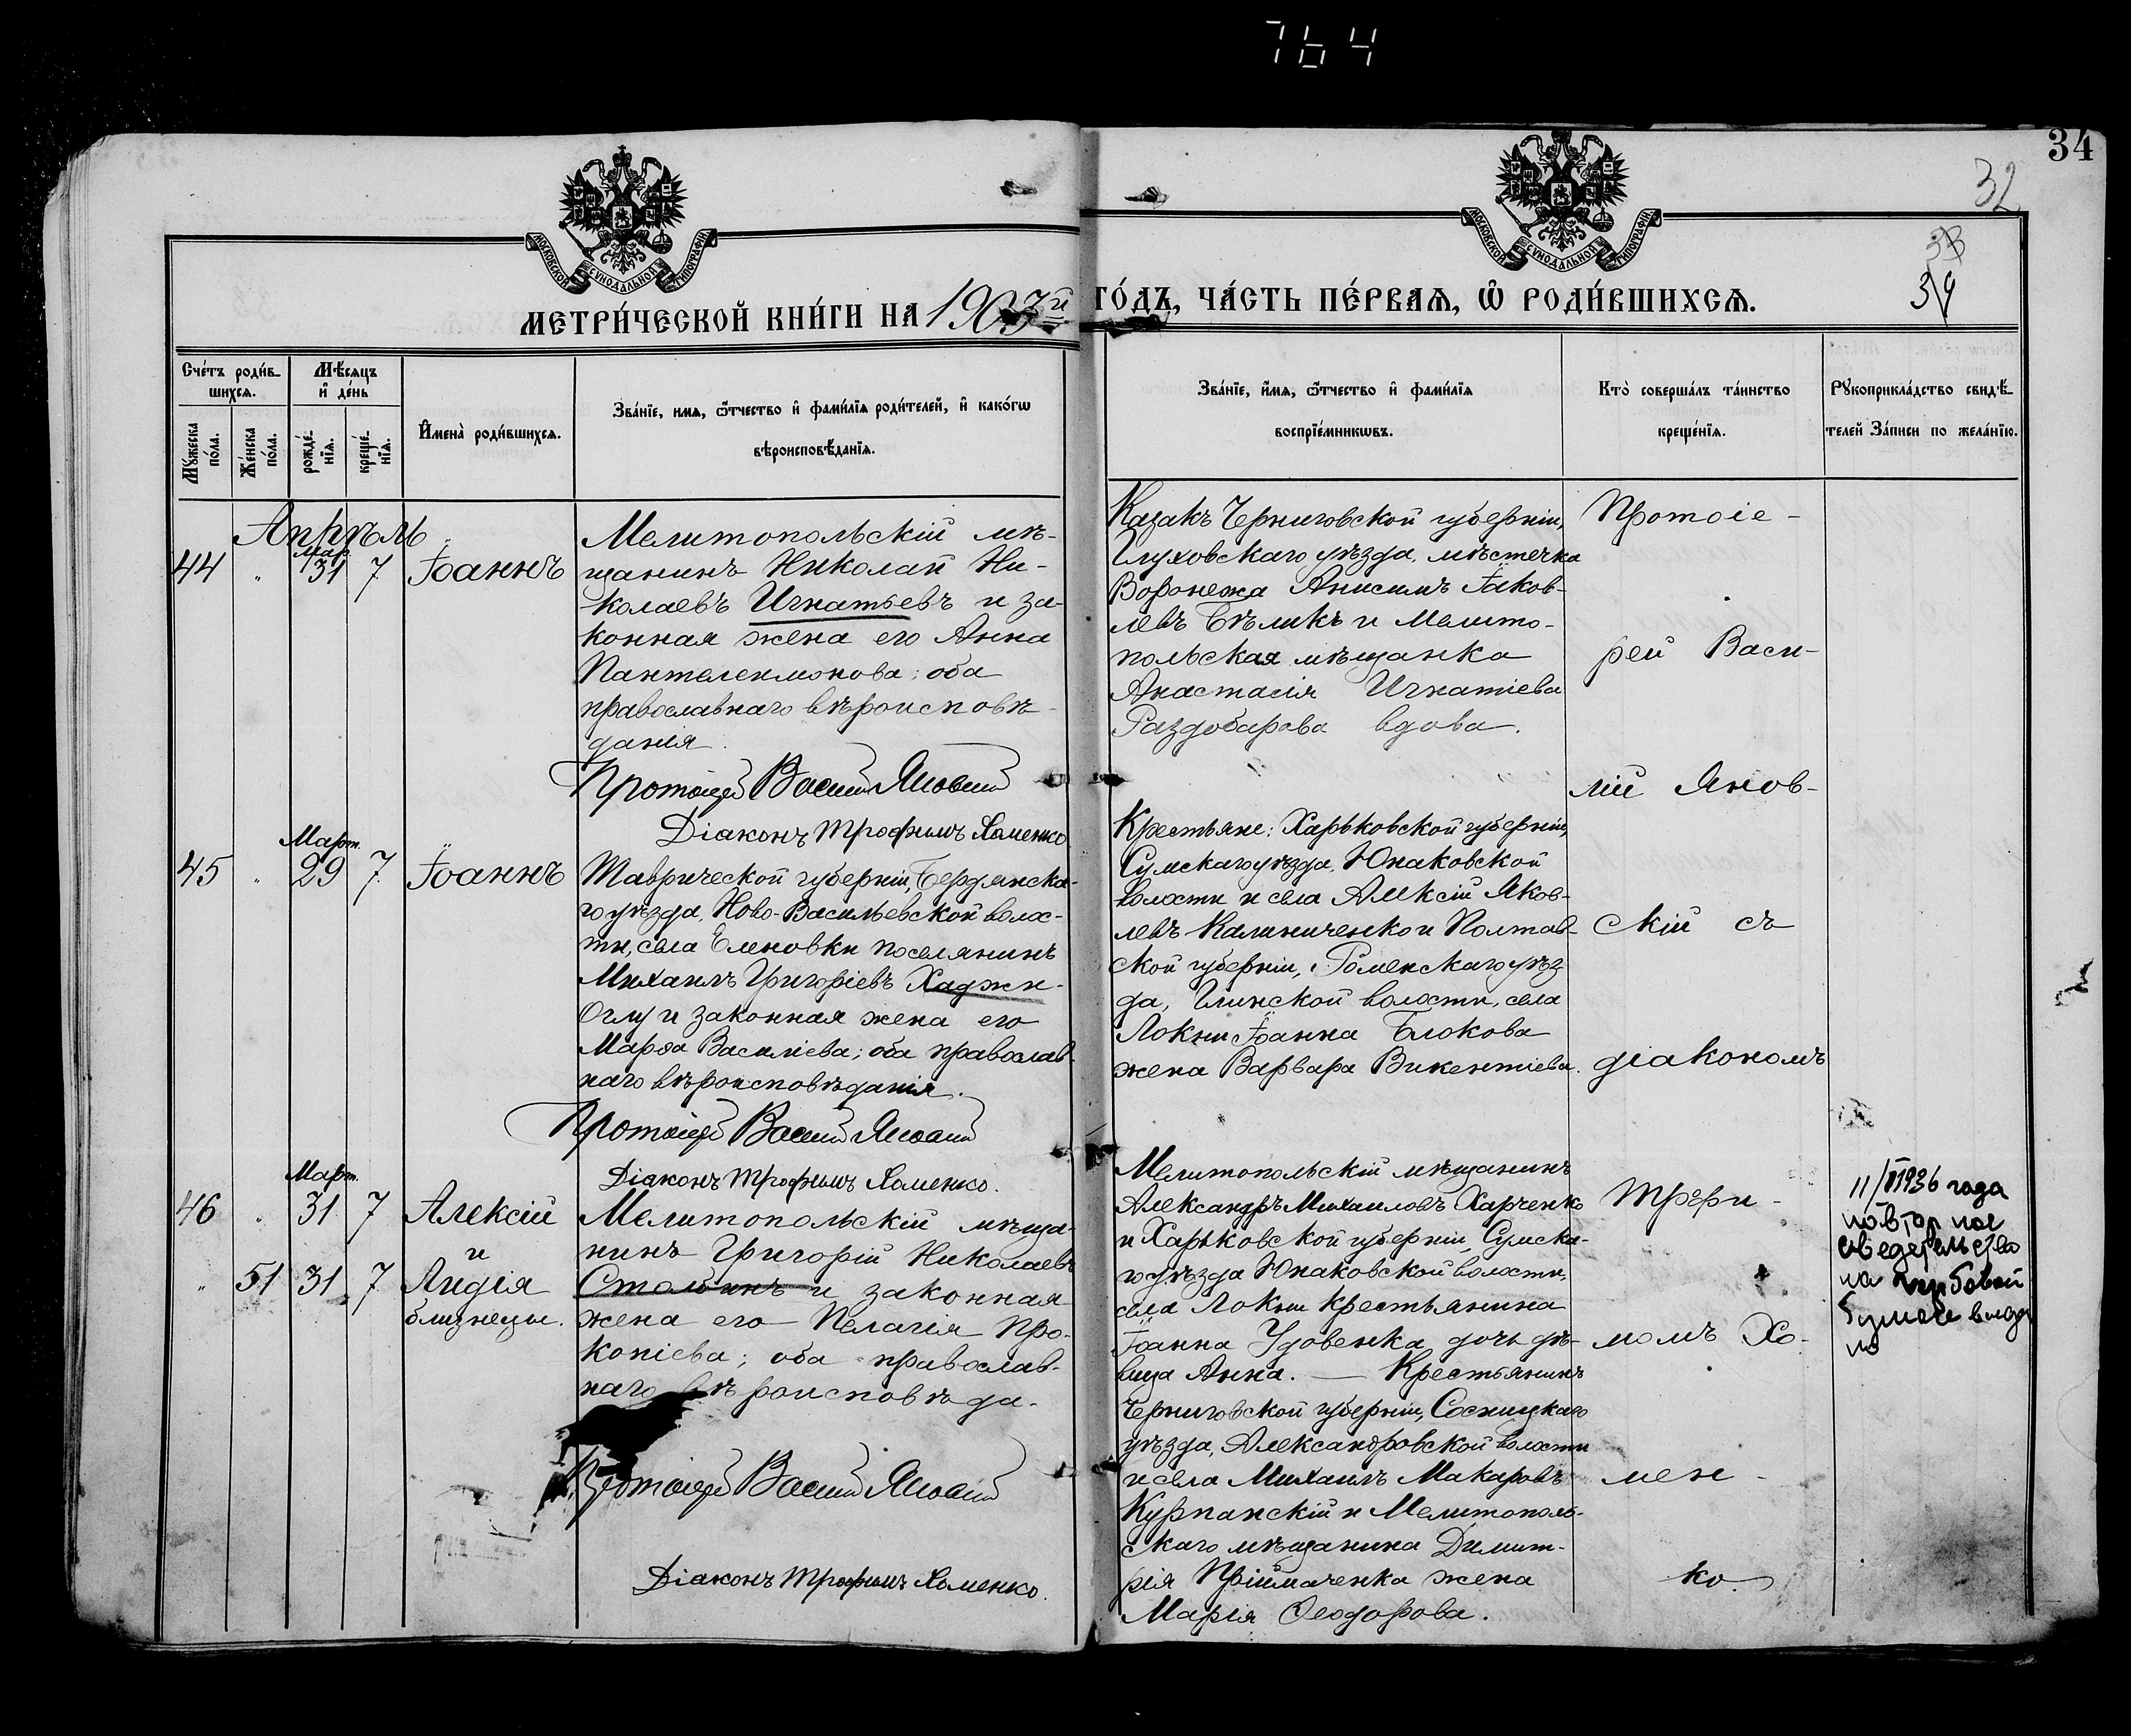 764
34
32
33
34
МОСКОВСКОЙ СѴНОДАЛЬНОЙ ТИПОГРАФІИ
МОСКОВСКОЙ СѴНОДАЛЬНОЙ ТИПОГРАФІИ
МЕТРИ́ЧЕСКОЙ КНИ́ГИ НА 1903й ГО́ДЪ, ЧА́СТЬ ПЕ́РВАѦ, Ѿ РОДИ́ВШИХСѦ.
Сче́тъ роди́в-
шихся.
Мѣ́сяцъ
и҆ де́нь
Му́жеска
по́ла.
Же́нска
по́ла.
рожде́-
нїя.
креще́-
нїя.
И҆мена̀ роди́вшихся.
Зва́нїе, имя, ѻ҆́тчество и҆ фами́лїя роди́телей, и҆ како́гѡ
вѣроисповѣ́данїя.
Зва́нїе, и҆́мя, ѻ҆́тчество и҆ фами́лїя
воспрїе́мникѡвъ.
Кто̀ соверша́лъ та́инство
креще́нїя.
Рꙋкоприкла́дство свидѣ́-
телей За́писи по жела́нїю.
Апрѣль
44 " Мар. 31 7 Іоаннъ
Мелитопольскій мѣ-
щанинъ Николай Ни-
колаевъ Игнатьевъ и за-
конная жена его Анна
Пантелеимонова; оба
православнаго вѣроисповѣ-
данія.
Протоіерей Василій Яновскій
Діаконъ Трофимъ Хоменко
Казакъ Черниговской губерніи,
Глуховскаго уѣзда, мѣстечка
Воронежа Анисимъ Іаков-
левъ Бѣликъ и Мелито-
польская мѣщанка
Анастасія Игнатіева
Раздобарова вдова.
Март.
45 " 29 7 Іоаннъ
Таврической губерніи, Бердянска-
го уѣзда, Ново-Васильевской волос-
ти, села Еленовки поселянинъ
Михаилъ Григоріевъ Хаджи-
Оглу и законная жена его
Марѳа Василіева; оба православ-
наго вѣроисповѣданія.
Протоіерей Василій Яновскій
Діаконъ Трофимъ Хоменко.
Крестьяне: Харьковской губерніи,
Сумскаго уѣзда, Юнаковской
волости и села Алексій Яков-
левъ Калиниченко и Полтав-
ской губерніи, Роменскаго уѣз-
да, Глинской волости, села
Локни Іоанна Блокова
жена Варвара Викентіева.
Март.
46 " 31 7 Алексій
и
" 51 31 7 Лидія
близнецы.
Мелитопольскій мѣща-
нинъ Григорій Николаевъ
Столбинъ и законная
жена его Пелагія Про-
копіева; оба православ-
наго вѣроисповѣда-
Протоіерей Василій Яновскій
Діаконъ Трофимъ Хоменко.
Мелитопольскій мѣщанинъ
Александръ Михаиловъ Харченко
и Харьковской губерніи, Сумска-
го уѣзда Юнаковской волости,
села Локни крестьянина
Іоанна Удовенка дочь дѣ-
вица Анна. — Крестьянинъ
Черниговской губерніи, Сосницкаго
уѣзда, Александровской волости
и села Михаилъ Макаровъ
Курпанскій и Мелитополь-
скаго мѣщанина Димит-
рія Пріймаченка жена
Марія Ѳеодорова.
Протоіе-
рей Васи-
лій Янов-
скій съ
діакономъ
Трофи-
момъ Хо-
мен-
ко.
11/VI 1936 года
повторное
свидетельство
на гербовой
бумаге выда
но